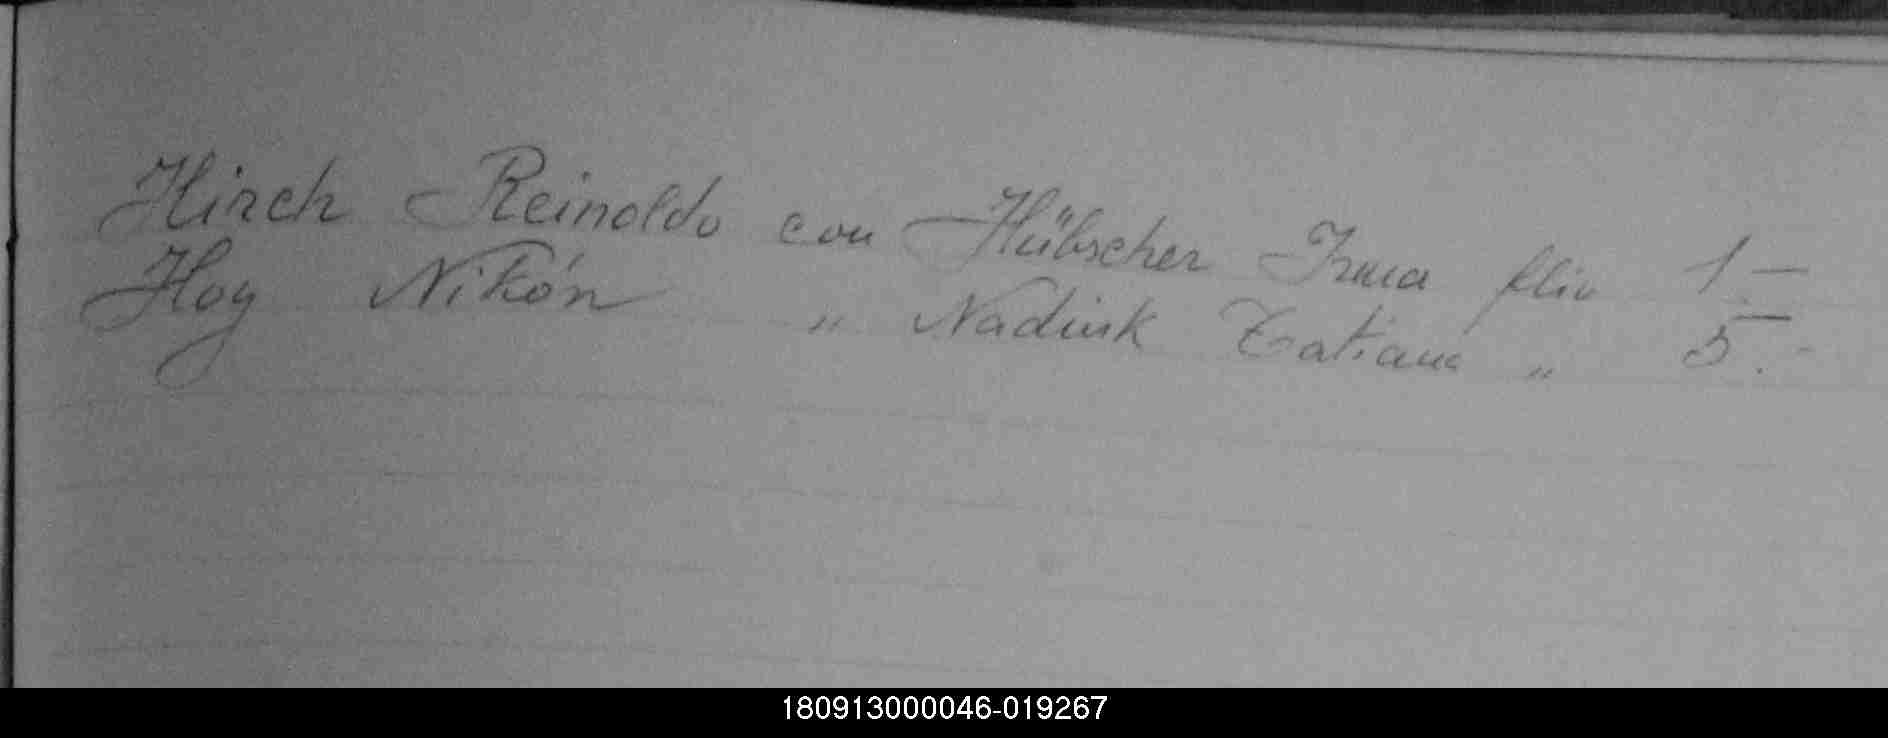 Hirch Reinoldo con Hübscher Irma flio 1.—
Hoy Nikón " Nadiuk Tatiana " 5.-
180913000046-019267